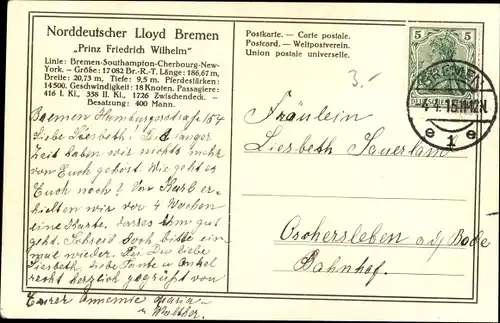 Norddeutscher Lloyd Bremen
„Prinz Friedrich Wilhelm"
Linie: Bremen-Southampton-Cherbourg-New-
York. - Größe: 17082 Br.-R.-T. Länge: 186,67 m,
Breite: 20,73 m, Tiefe: 9,5 m. Pferdestärken:
14500. Geschwindigkeit: 18 Knoten. Passagiere:
416 I. Kl., 338 II. Kl., 1726 Zwischendeck. -
Besatzung: 400 Mann.
Bremen Humburgerstraße 157
Liebe Liesbeth! Seit langer
Zeit haben wir nichts mehr
von Euch gehört. Wie geht es
Euch noch? Von Karl er-
hielten wir vor 4 Wochen
eine Karte, dass es ihm gut
geht. Schreib doch bitte ein
mal wieder. Sei Du liebe
Liesbeth, liebe Tante u. Onkel
recht herzlich gegrüßt von
Eurer Annemie Maria
u. Walther.
Postkarte. — Carte postale.
Postcard. — Weltpostverein.
Union postale universelle.
3.-
5 5
DEUTSCHES
BREMEN
1.15.11-12N.
e 1 e
Fräulein
Liesbeth Sauerland
Oschersleben a/d Bode
Bahnhof.